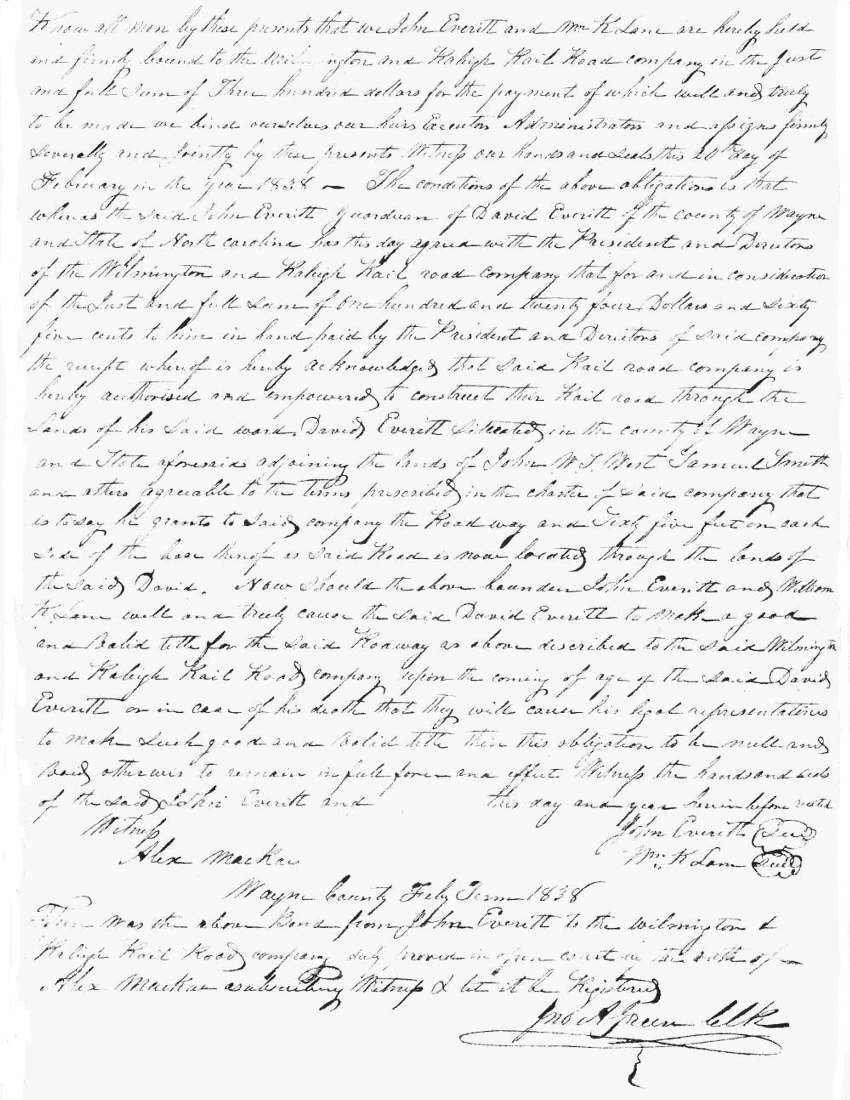 Know all men by these presents that we John Everitt and Wm K Lane are hereby held
and firmly bound to the Wilmington and Raleigh Rail Road company in the Just
and full Sum of Three hundred dollars for the payment of which well and truly
to be made we bind ourselves our heirs Executors Administrators and assigns firmly
Severally and Jointly by these presents Witness our hands and seals this 20th day of
February in the year 1838 — The conditions of the above obligations is that
whereas the Said John Everitt Guardian of David Everitt of the county of Wayne
and State of North Carolina has this day agreed with the President and Directors
of the Wilmington and Raleigh Rail road company that for and in consideration
of the Just and full Sum of One hundred and twenty four Dollars and Sixty
five cents to him in hand paid by the President and Directors of said company
the receipt whereof is hereby acknowledged that Said Rail road company is
hereby authorised and empowered to construct their Rail road through the
Lands of his Said ward David Everitt Situated in the county of Wayne
and State aforesaid adjoining the lands of John W J. West Samuel Smith
and others agreeable to the terms prescribed in the charter of Said company that
is to say he grants to Said company the Road way and Sixty five feet on each
Side of the base thereof as Said Road is now located through the lands of
the Said David. Now Should the above bounden John Everitt and William
K Lane well and truly cause the said David Everitt to make a good
and Valid title for the Said Roaway as above described to the Said Wilmington
and Raleigh Rail Road company upon the coming of age of the Said David
Everitt or in case of his death that they will cause his legal representatives
to make Such good and Valid title then this obligation to be null and
Void otherwise to remain in full force and effect Witness the hands and seals
of the Said John Everitt and this day and year herein before recited
Witness John Everitt (Seal)
Alex MacRae Wm. K Lane (Seal)
Wayne County Feby Term 1838
Then was the above Bond from John Everitt to the Wilmington &
Raleigh Rail Road company duly proved in open court on the oath of
Alex MacRae a subscribing Witness & let it be Registered
Jno A Green Clk